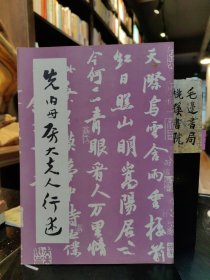 先伯母房太夫人行述
天際烏雲含雨重樓前
紅日照山明嵩陽居士
今何在青眼看人万里情
夢中詩也
毛邊書局
溪書院